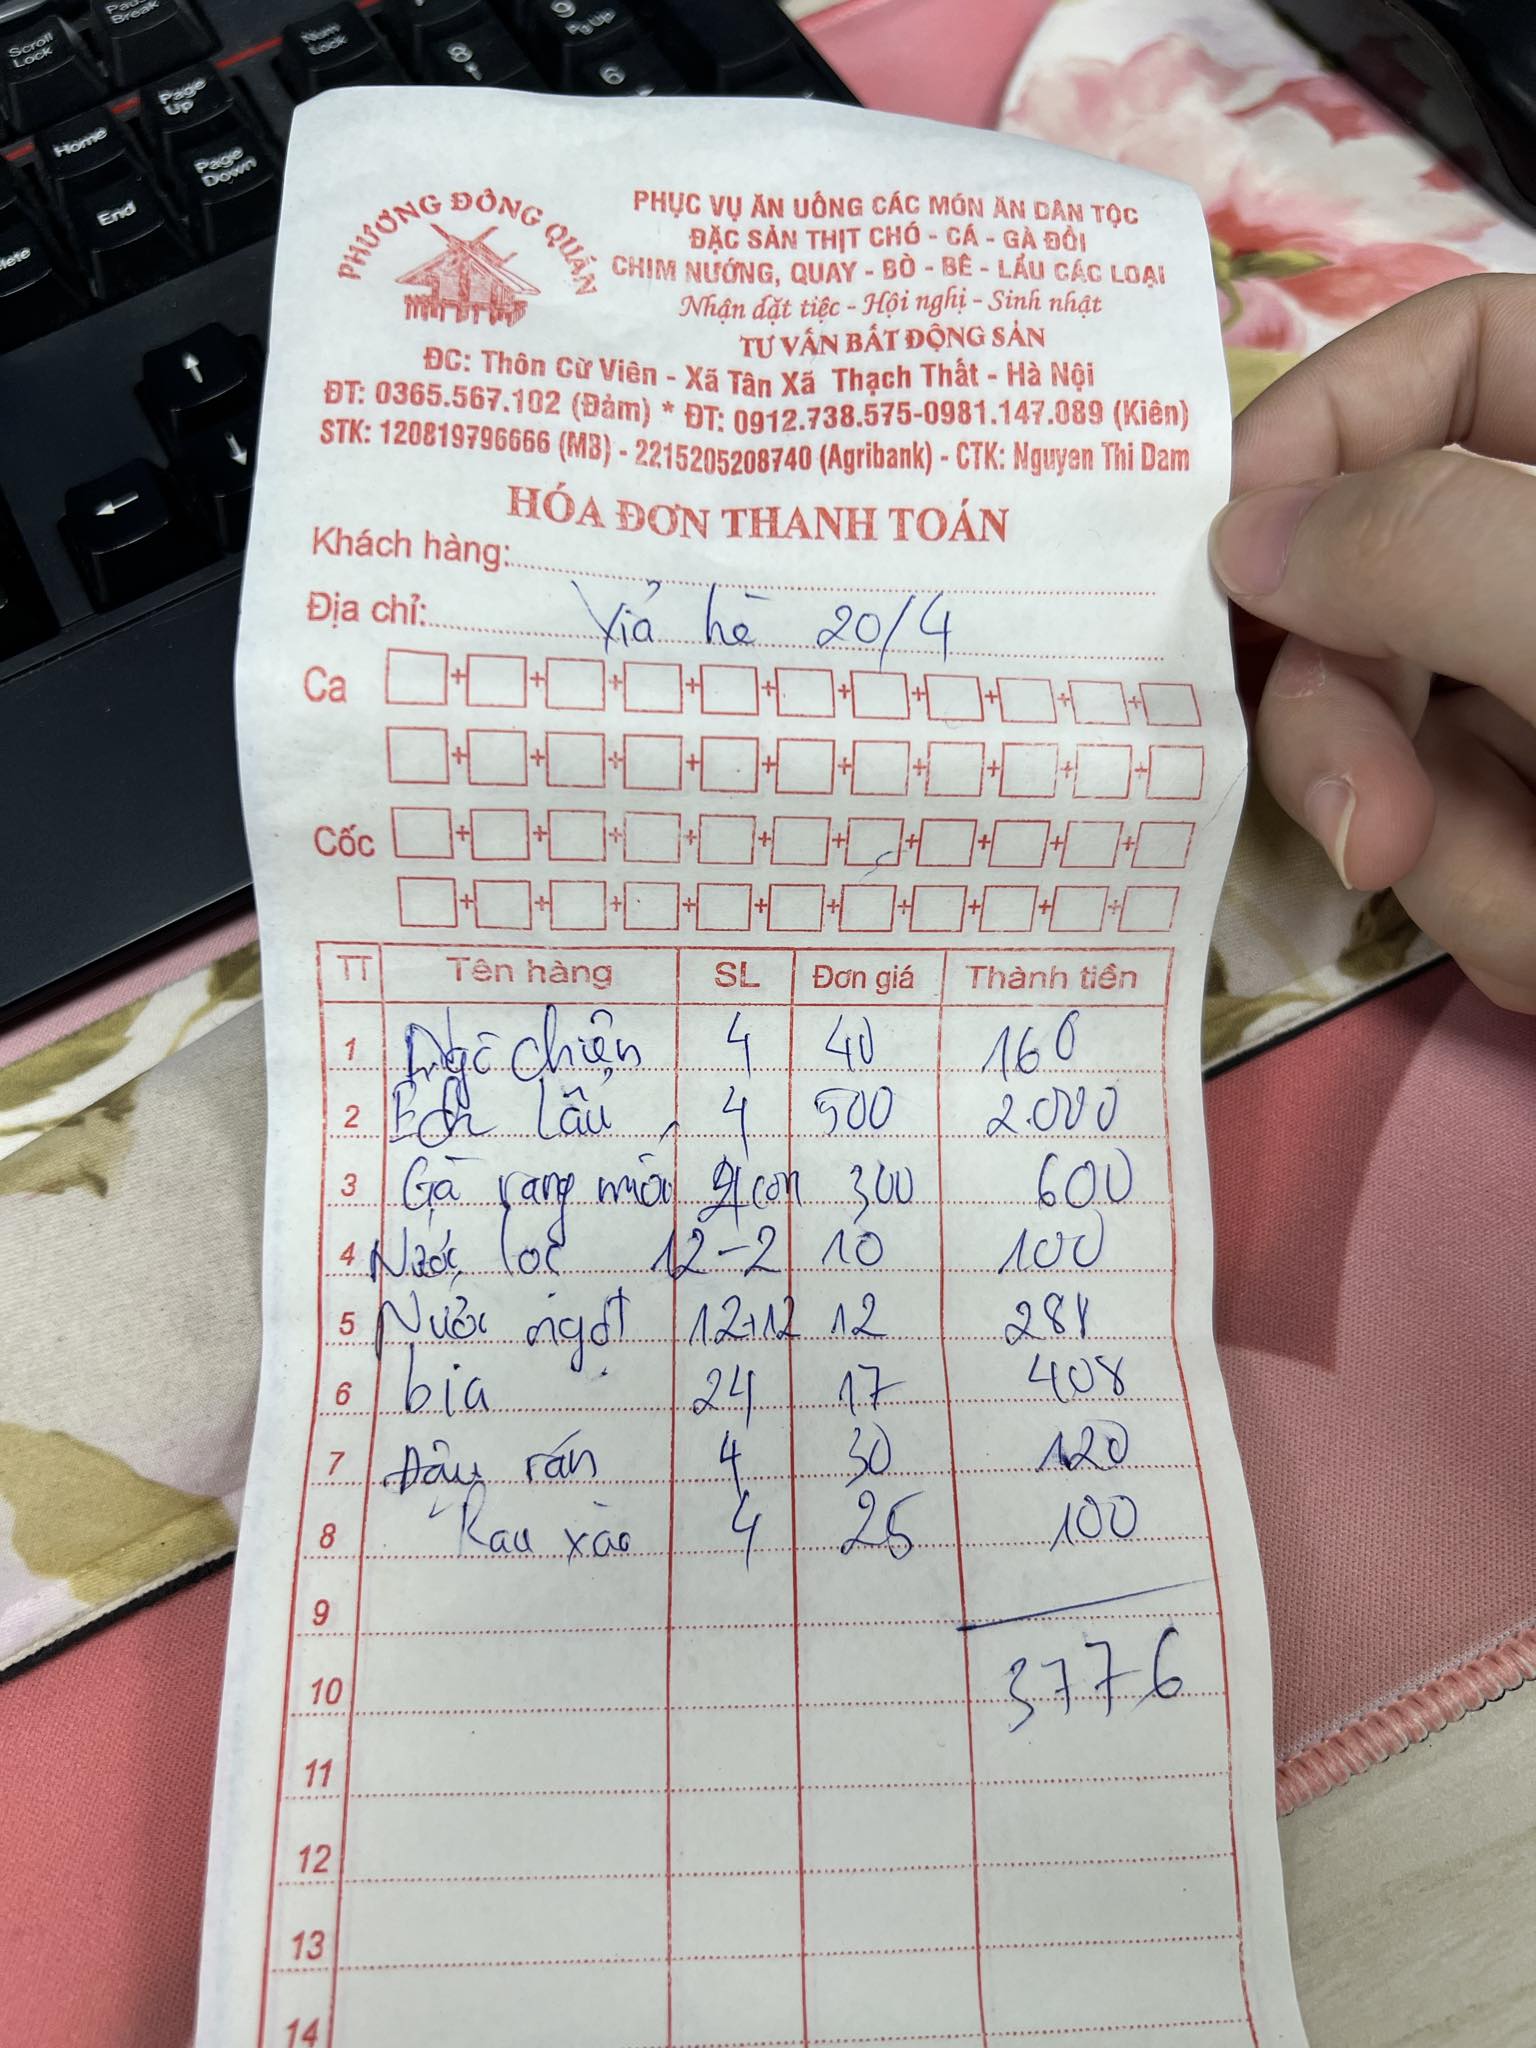 Scroll Lock
Pause Break
Num Lock
8
9
Pg Up
6
Home
Page Up
End
Page Down
PHƯƠNG ĐÔNG QUÁN
PHỤC VỤ ĂN UỐNG CÁC MÓN ĂN DÂN TỘC
ĐẶC SẢN THỊT CHÓ - CÁ - GÀ ĐỒI
CHIM NƯỚNG, QUAY - BÒ - BÊ - LẨU CÁC LOẠI
Nhận đặt tiệc - Hội nghị - Sinh nhật
TƯ VẤN BẤT ĐỘNG SẢN
ĐC: Thôn Cừ Viên - Xã Tân Xã Thạch Thất - Hà Nội
ĐT: 0365.567.102 (Đảm) * ĐT: 0912.738.575-0981.147.089 (Kiên)
STK: 120819796666 (MB) - 2215205208740 (Agribank) - CTK: Nguyen Thi Dam
HÓA ĐƠN THANH TOÁN
Khách hàng:
Địa chỉ: Vỉa hè 20/4
Ca + + + + + + + + + +
+ + + + + + + + + +
Cốc + + + + + + + + + +
+ + + + + + + + + +
TT Tên hàng SL Đơn giá Thành tiền
1 Ngô chiên 4 40 160
2 Ếch lẩu 4 500 2.000
3 Gà rang muối 2 con 300 600
4 Nước lọc 12-2 10 100
5 Nước ngọt 12+12 12 288
6 bia 24 17 408
7 Đậu rán 4 30 120
8 Rau xào 4 25 100
9
10 3776
11
12
13
14